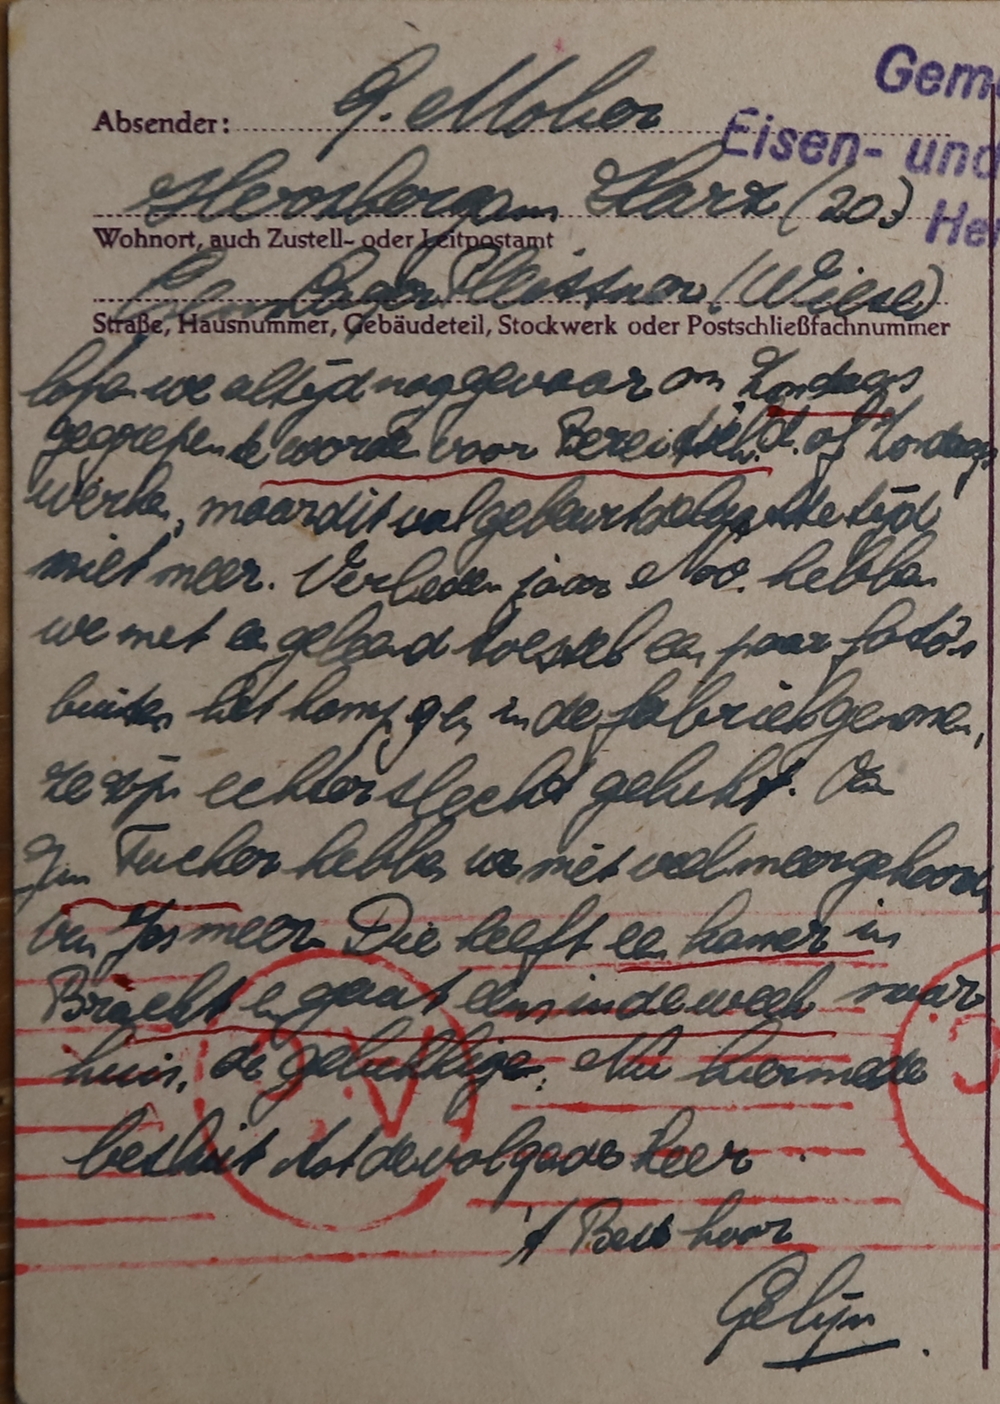 Absender: G. Molier
Gem
Eisen- und
Herzberg am Harz (20)
He
Wohnort, auch Zustell- oder Leitpostamt
Lager Pleissner (Wiese)
Straße, Hausnummer, Gebäudeteil, Stockwerk oder Postschließfachnummer
lopen we altijd nog gevaar om Zondags
gegrepen te worden voor Bereitschd. of Zondags
werken, maar dit valt gebeurt de laatste tijd
niet meer. Verleden jaar Nov. hebben
we met een geleend toestel een paar foto's
buiten het kamp en in de fabriek genomen,
ze zijn echter slecht gelukt. Van
Jan Tucker hebben we niet veel meer gehoord,
van Jos meer. Die heeft een kamer in
Bracht en gaat eens in de week naar
huis, de gelukkige. Nu hiermede
besluit tot de volgende keer.
't Beste hoor
Gelijn